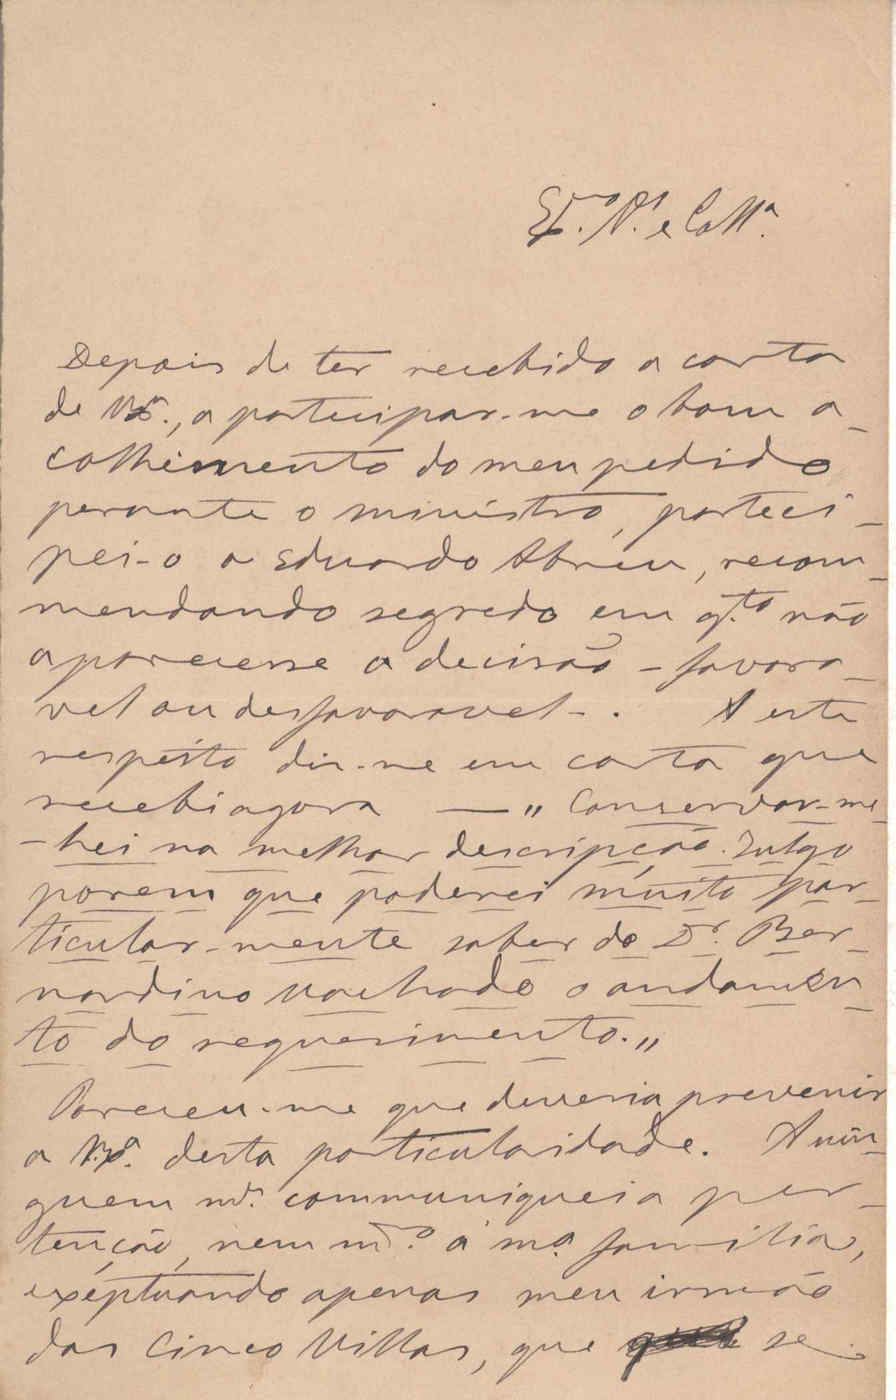 Ex.mo A.º e Coll.ª
Depois de ter recebido a carta
de V.ª, a partecipar-me o bom a-
colhimento do meu pedido
perante o ministro, parteci-
pei-o a Eduardo Abreu, recom-
mendando segredo em q.to não
aparecesse a decisão - favora-
vel ou desfavoravel -. A este
respeito diz-me em carta que
recebi agora — „ Conservar-me-
-hei na melhor descripção. Julgo
porem que poderei muito par-
ticular-mente saber do Dr. Ber-
nardino Machado o andamen-
to do requerimento. „
Pareceu-me que deveria prevenir
a V.ª desta particularidade. A nin-
guem m.s communiquei a per-
tenção, nem m.mo á m.ª familia,
exeptuando apenas meu irmão
das Cinco Villas, que se